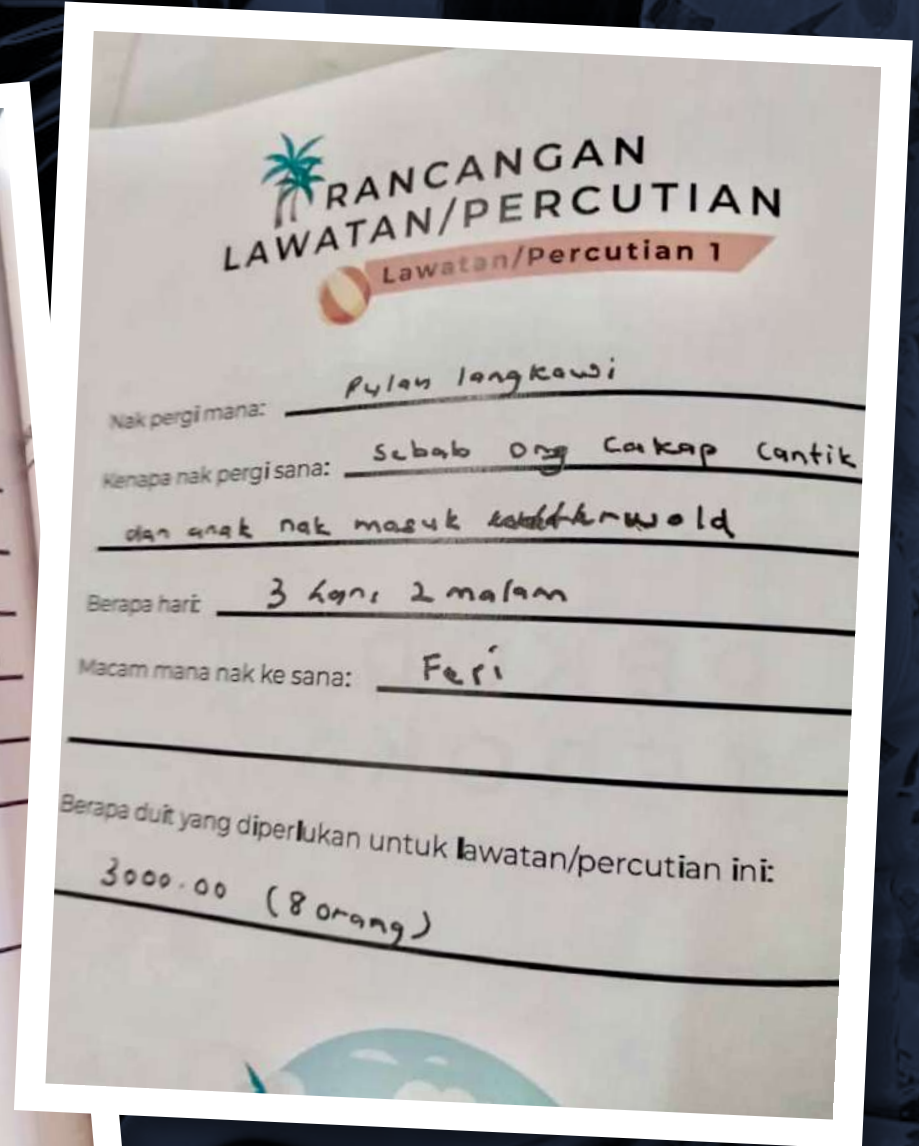 RANCANGAN
LAWATAN/PERCUTIAN
Lawatan/Percutian 1
Nak pergi mana: Pulau langkawi
Kenapa nak pergi sana: Sebab org cakap cantik
dan anak nak masuk
Berapa hari: 3 hari 2 malam
Macam mana nak ke sana: Feri
Berapa duit yang diperlukan untuk lawatan/percutian ini:
3000.00 (8 orang)